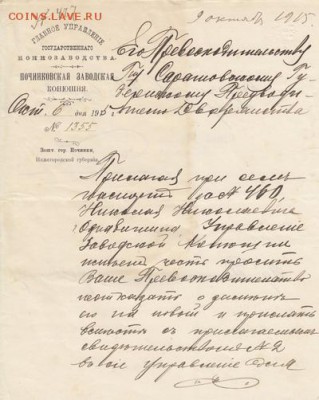 COINS.LAVE.RU
№ 437
9 октября 1915
ГЛАВНОЕ УПРАВЛЕНІЕ
ГОСУДАРСТВЕННАГО
КОННОЗАВОДСТВА.
ПОЧИНКОВСКАЯ ЗАВОДСКАЯ
КОНЮШНЯ.
Окт. 6 дня 1915 г.
№ 1355
Почт. гор. Починки,
Нижегородской губерніи.
Его Превосходительству
Гну Саратовскому Гу-
бернскому Предводи-
телю Дворянства
Прилагая при семъ
паспортъ за № 460,
Николая Николаевича
Управленіе
Заводской Конюшни
имѣетъ честь просить
Ваше Превосходительство
о
на новый и прислать
въ
свидѣтельствомъ № 2
въ Управленіе для